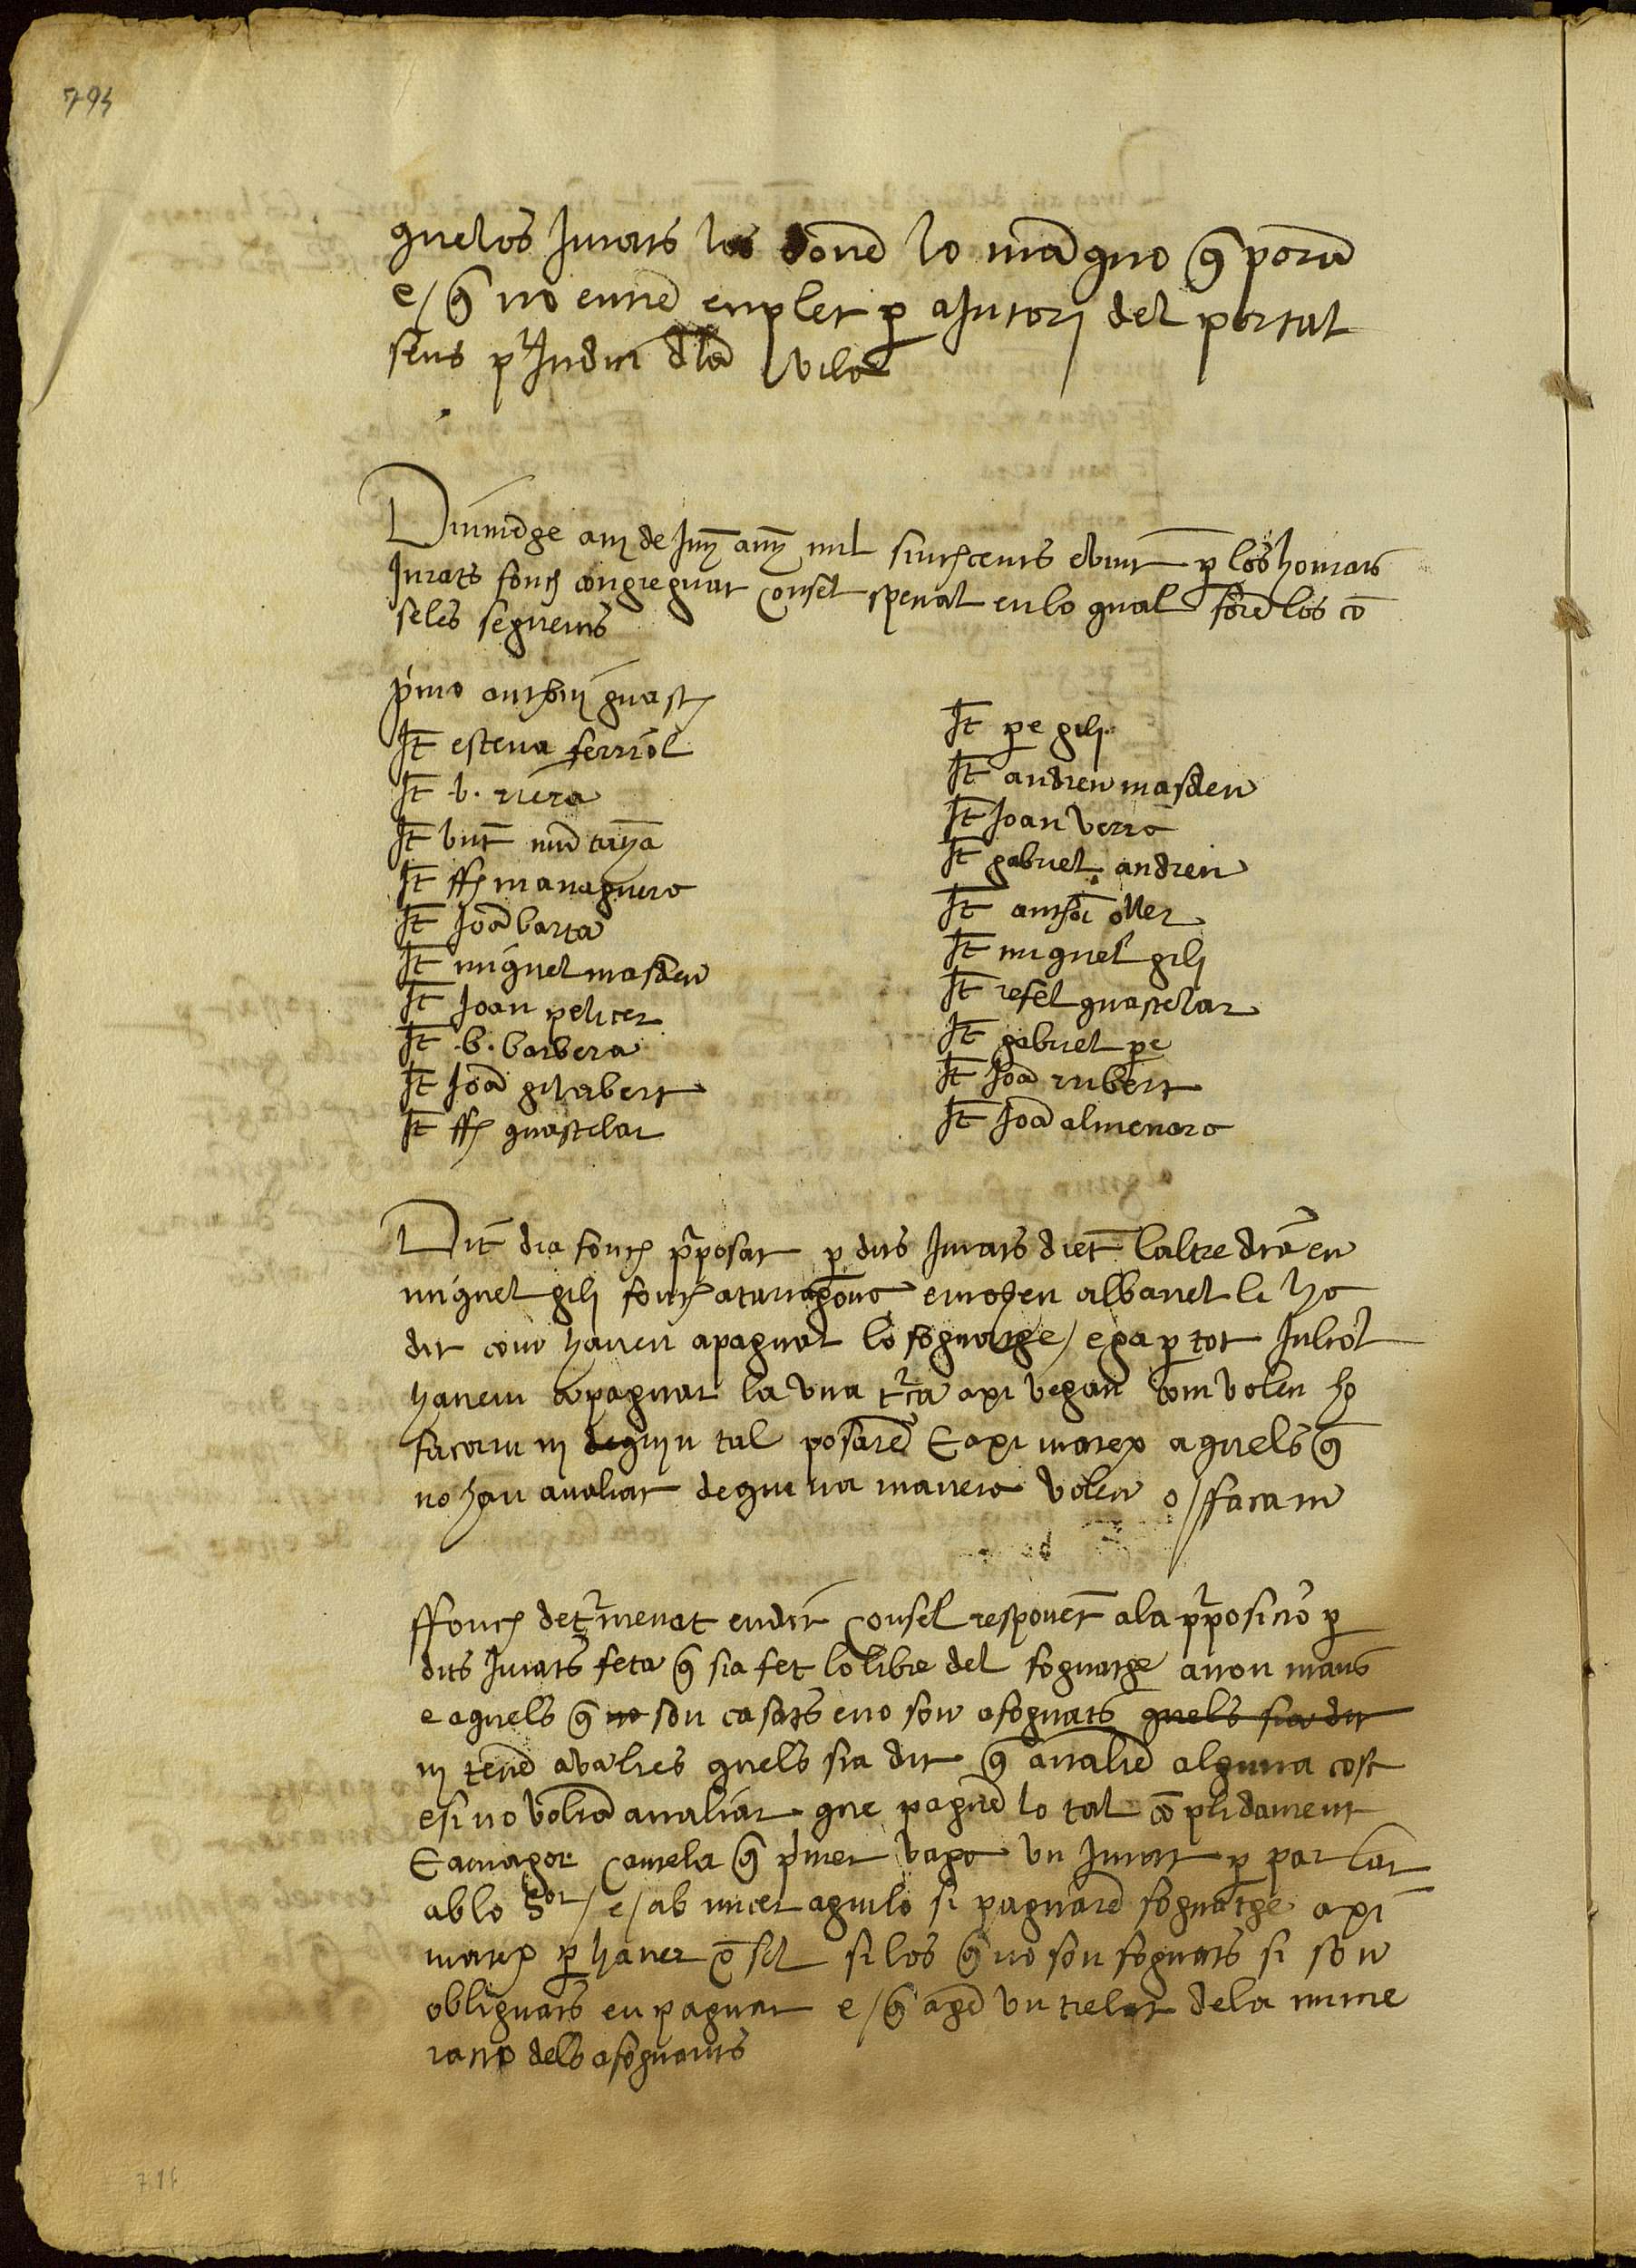 794
quelos Jurats los donē lo mēgno q̄ porā
e/ q̄ no enne enplet p̄ aJutori del portal
sens p̄Judici d̄la vila
Diumēge a iij de Juny any mil sinchcents e vint p̄ los honrats
Jurats fonch congreguat consel special enlo qual forē los cō
seles seguents
p̄imo anthoni guasch
It̄ esteva ferriol
It̄ b. riera
It̄ vint̄ muntanya
It̄ ffr managuera
It̄ Joā barta
It̄ miquel masdeu
It̄ Joan pelicer
It̄ .b. barbera
It̄ Joā gilabert
It̄ ffr guastelar
It̄ p̄e gili
It̄ andreu masdeu
It̄ Joan verra
It̄ gabriel andreu
It̄ anthoī oller
It̄ miquel gili
It̄ refel guastelar
It̄ gabriel p̄e
It̄ Joā rubert
It̄ Joā almenara
Dit dia fonch p̄posat p̄ dits Jurats dient̄ laltre dia en
miquel gili fonch a taragona e mossen albanel li ha
dit com haven a paguar lo foguatge / e ga p̄ tot Juliol
havem a paguar la una t̄ca axi vegan com volen ho
facam ni deguin tal posarē E axi matex aquels q̄
no han avaliat deguna manera volen o / ffacam
ffonch det̄menat en dit consel responent̄ ala p̄posicio p̄
dits Jurats feta q̄ sia fet lo libre del foguatge a non mans
e aquels q̄ no son casats e no son afoguats quels sia dit
ni tenē avalies quels sia dit q̄ avaliē alguna cosa
e si no voliā avaliar que paguē lo tal cōplidament
E a magor cautela q̄ p̄mer vaga un Jurat p̄ parlar
ab lo Sor / e / ab micer aguilo si paguarē foguatge axi
matex p̄ haver cōsel si los q̄ no son foguats si son
obliguats en paguar e / q̄ agē un trelat dela nume
racio dels afoguants